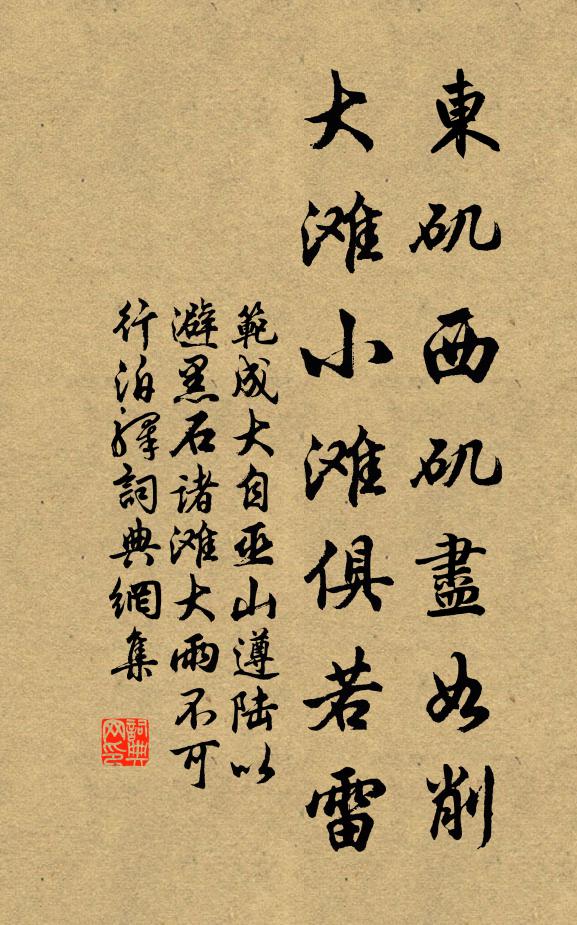 東矶西矶盡如削
大滩小滩俱若雷
範成大自巫山遵陆以
避黑石诸滩大雨不可
行泊驛詞典網集
詞典
网印